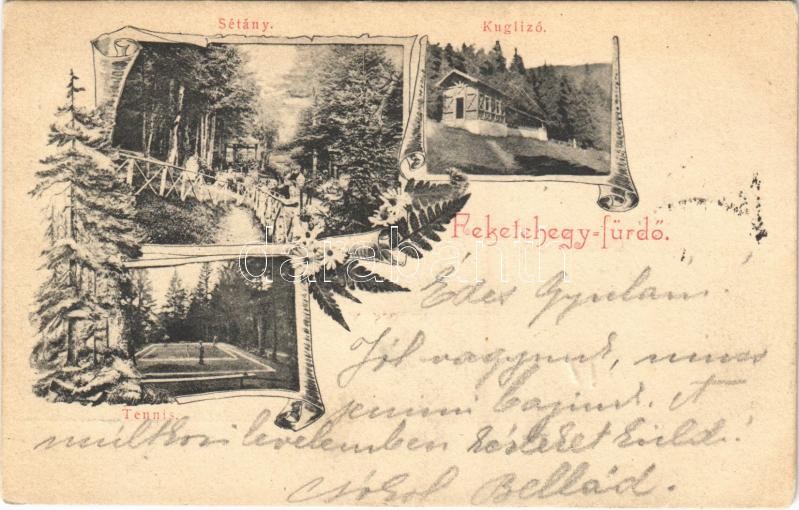 Sétány.
Kuglizó.
Feketehegy-fürdő.
Tennis.
darabanth
Édes Gyulám!
Jól vagyunk, nincs
semmi bajunk. A
múltkori levelemben
Csókol Bellád.